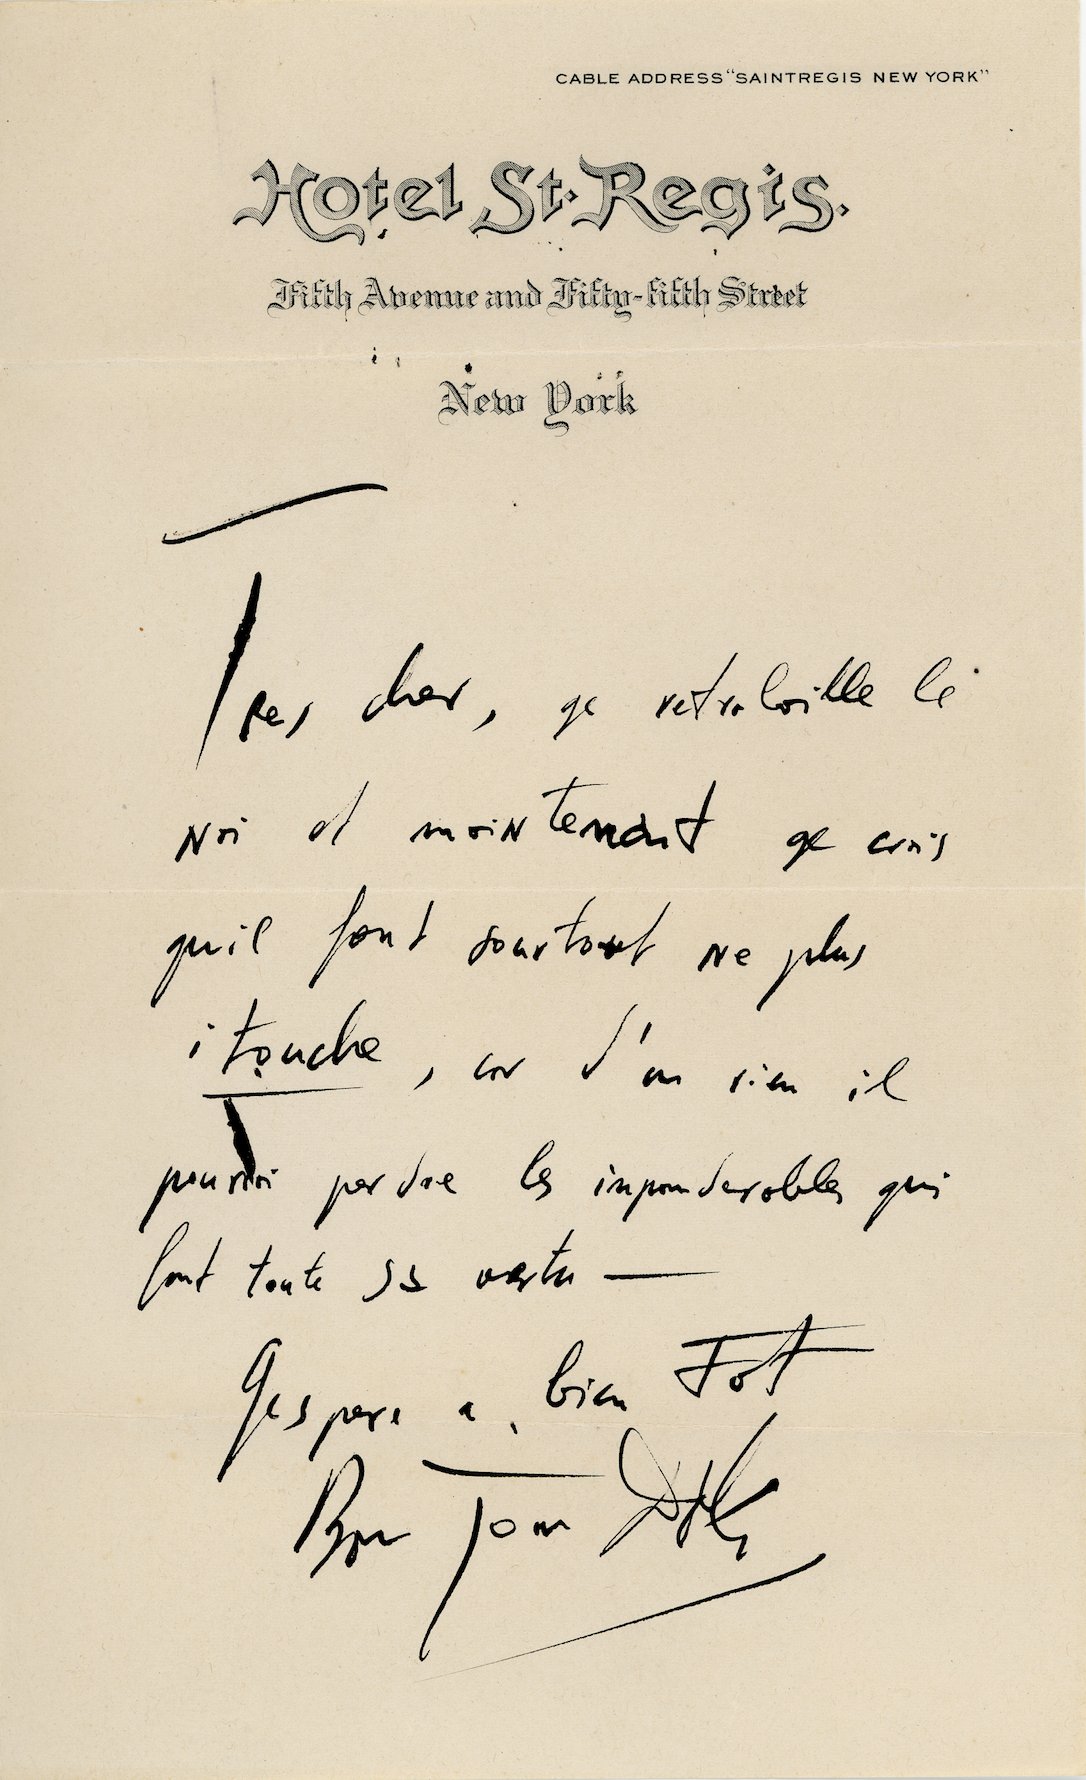 CABLE ADDRESS "SAINTREGIS NEW YORK"
Hotel St. Regis.
Fifth Avenue and Fifty-fifth Street
New York
Tres cher, ge retravaille le
noi et maintenant ge crois
quil faut sourtout ne plus
i touche, car d'un rien il
pourrai perdre les imponderables qui
font toute sa vertu —
Gespere a bien Tot
Bon jour Dali